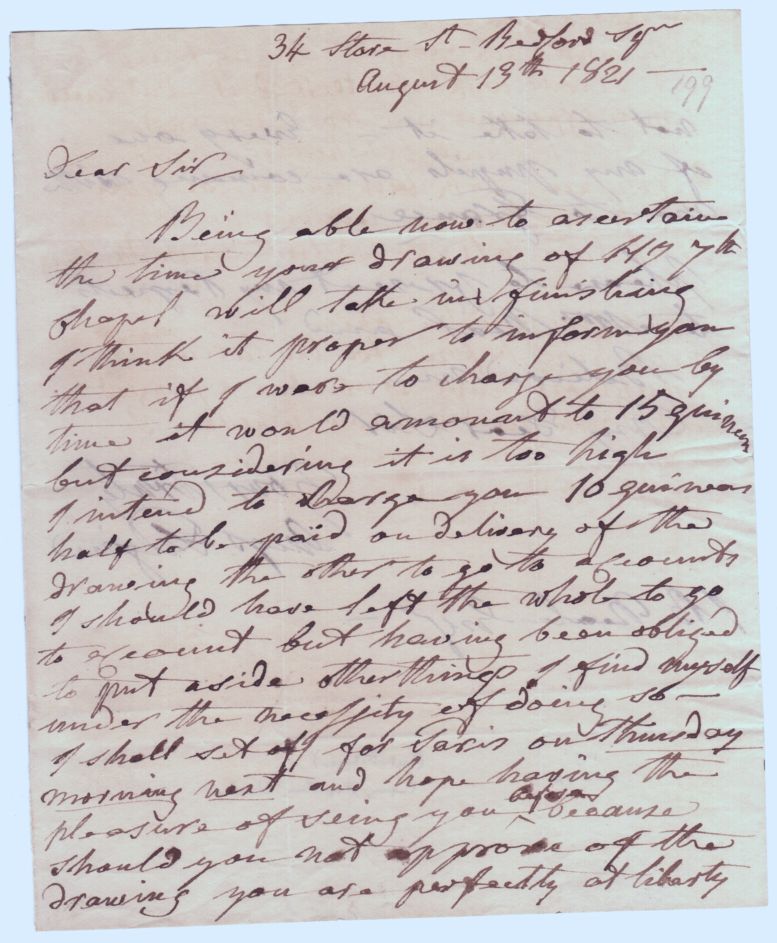 34 Store St- Bedford Sqre
August 13th 1821 —
199
Dear Sir
Being able now to ascertain
the time your drawing of H 7 7th
chapel will take in finishing
I think it proper to inform you
that if I were to charge you by
time it would amount to 15 guineas
but considering it is too high
I intend to charge you 10 guineas
half to be paid on delivery of the
drawing the other to go to accounts
I should have left the whole to go
to account but having been obliged
to put aside other things I find myself
under the necessity of doing so—
I shall set off for Paris on Thursday
morning next and hope having the
pleasure of seing you before because
should you not approve of the
drawing you are perfectly at liberty